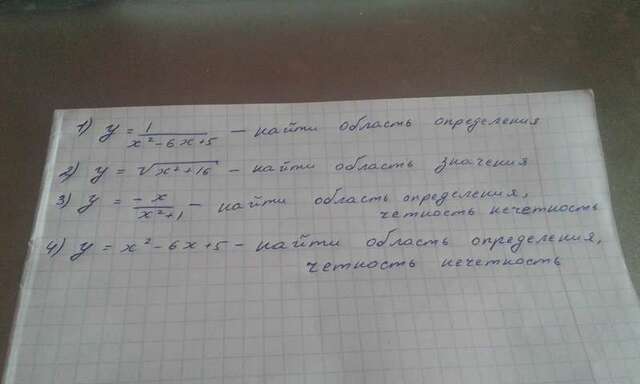 1) y = 1/(x² - 6x + 5) – найти область определения
2) y = √(x² + 16) – найти область значения
3) y = -x/(x² + 1) – найти область определения,
четность нечетность
4) y = x² - 6x + 5 – найти область определения,
четность нечетность